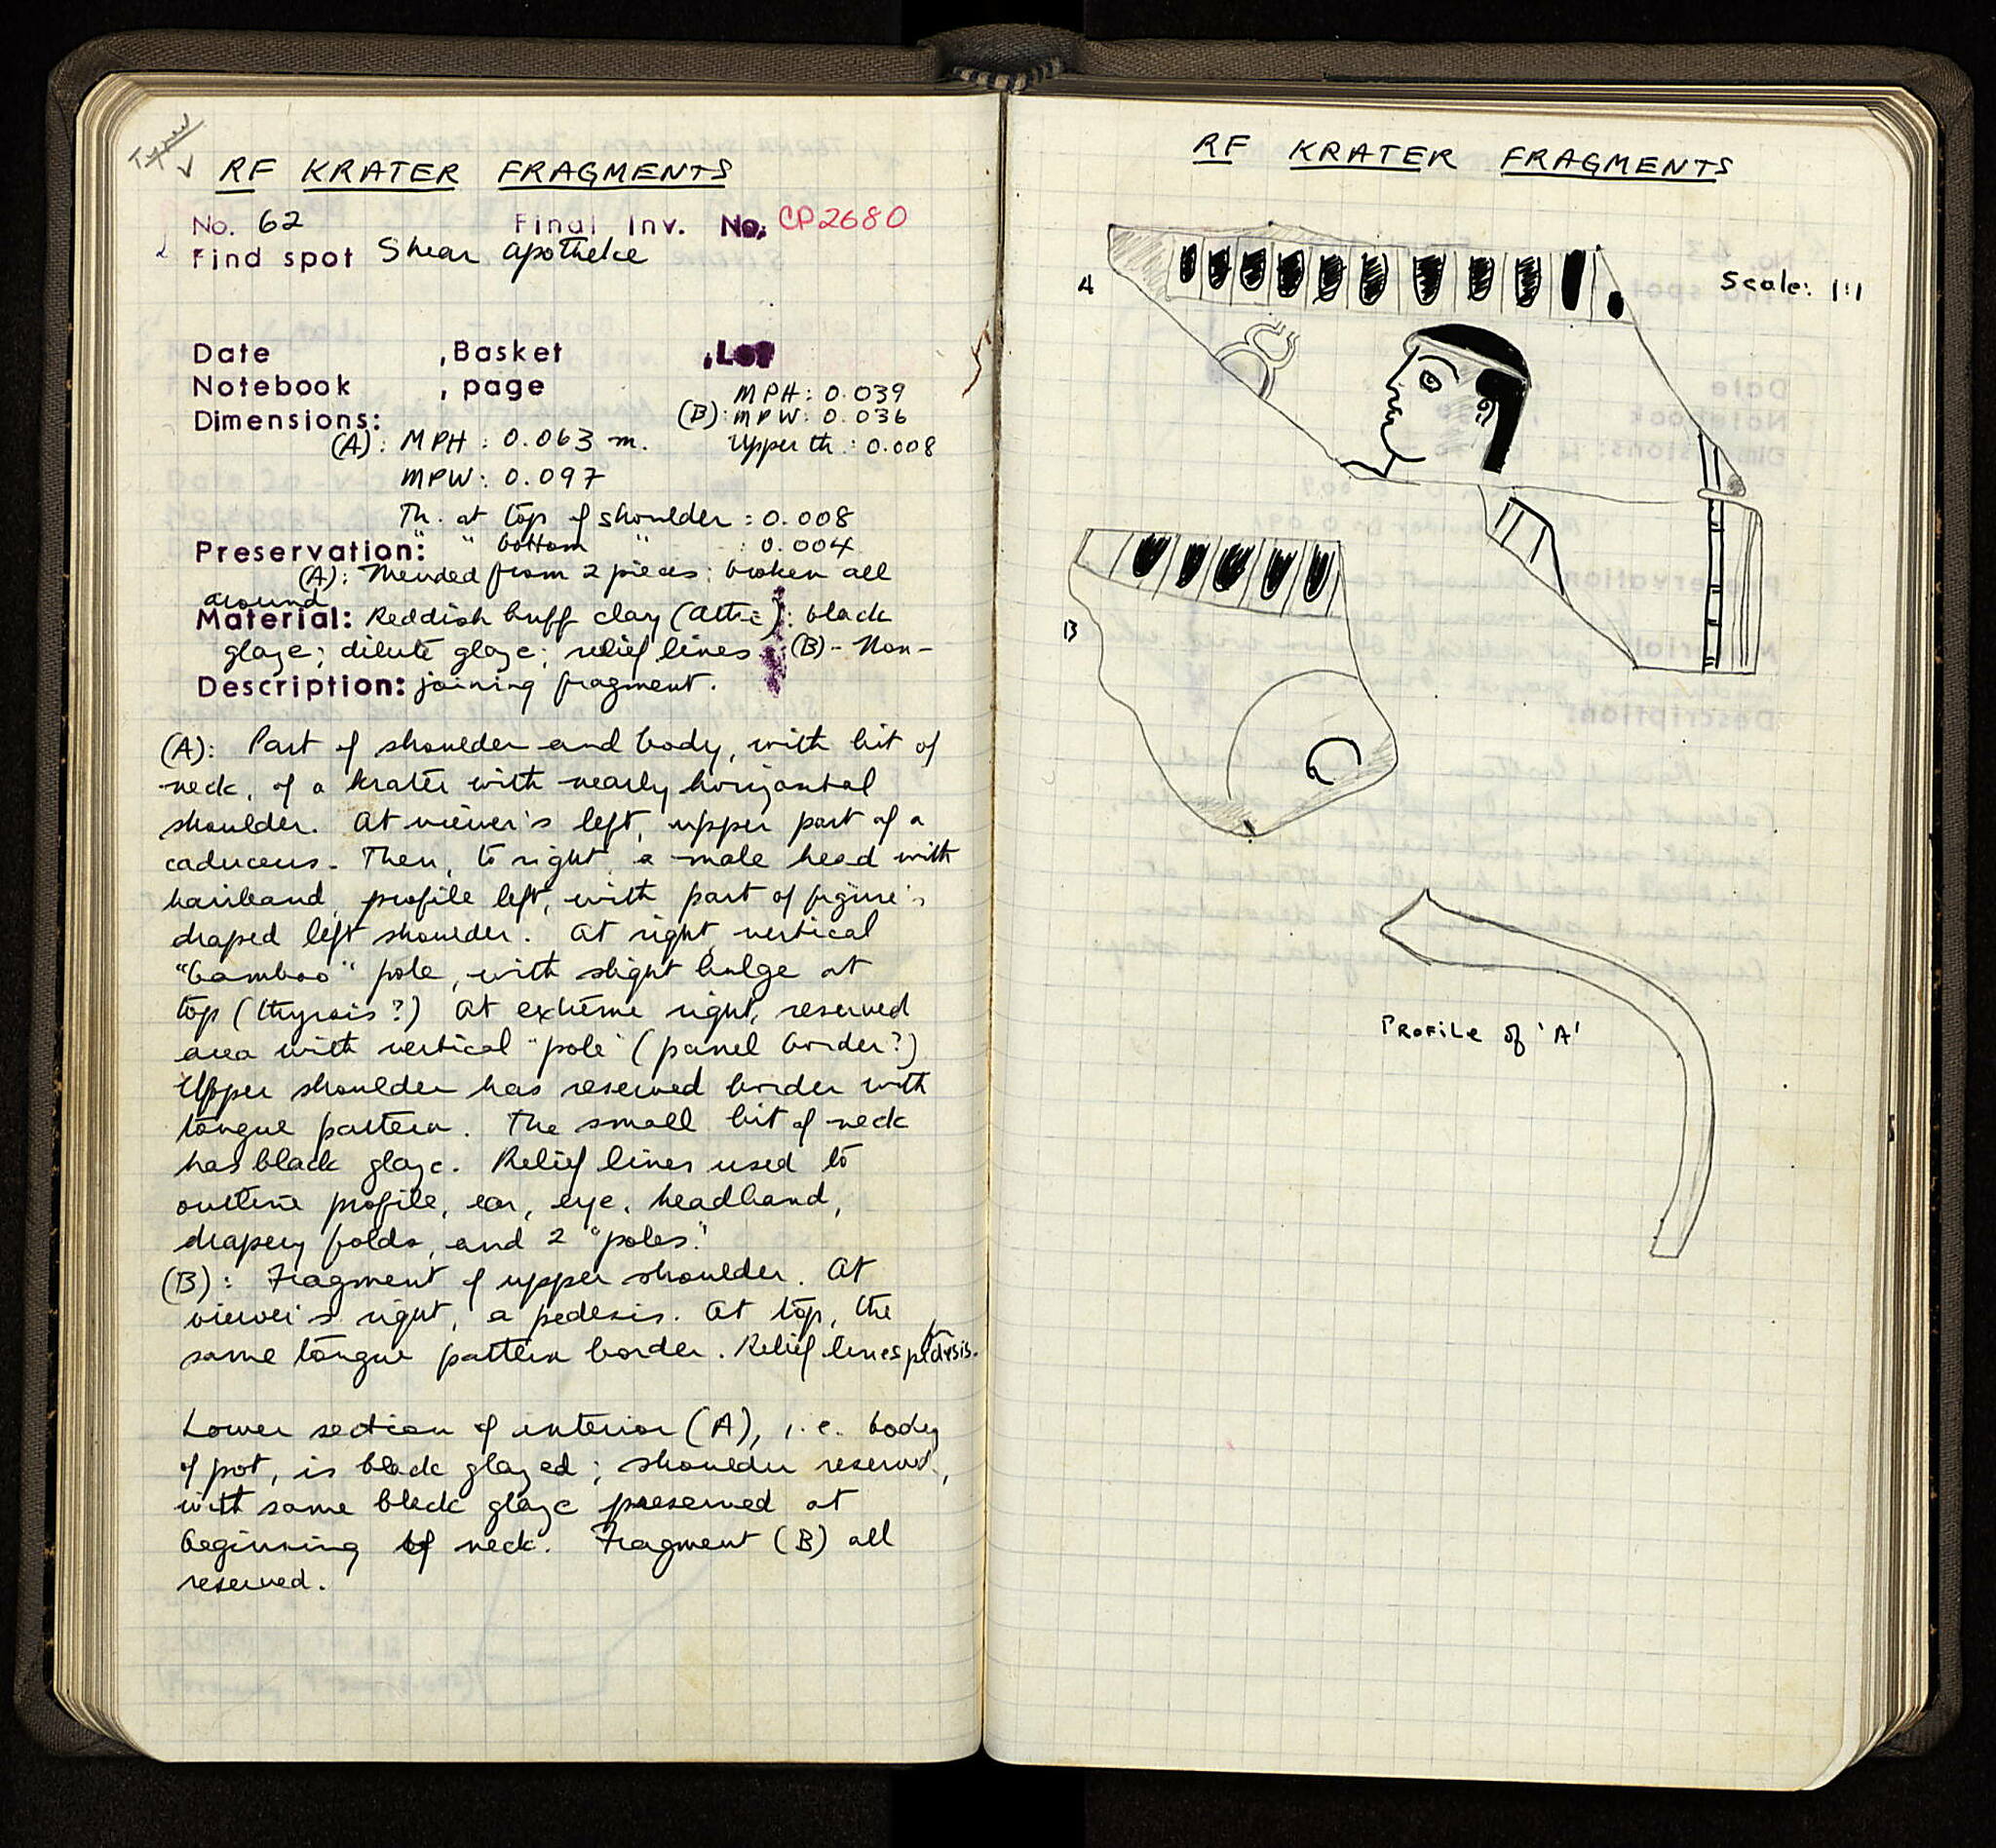 Typed ✓
RF KRATER FRAGMENTS
No. 62 Final Inv. No. CP2680
Find spot Shear Apotheke
Date , Basket , Lot
Notebook , page
Dimensions:
(A): MPH: 0.063 m.
MPW: 0.097
(B): MPH: 0.039
MPW: 0.036
Upper th.: 0.008
Th. at top of shoulder: 0.008
" " bottom " : 0.004
Preservation:
(A): Mended from 2 pieces; broken all
around
Material: Reddish buff clay (Attic); black
glaze; dilute glaze; relief lines. (B) - Non-
Description: joining fragment.
(A): Part of shoulder and body, with bit of
neck, of a krater with nearly horizontal
shoulder. At viewer's left, upper part of a
caduceus. Then, to right, a male head with
hairband, profile left, with part of figure's
draped left shoulder. At right, vertical
"bamboo" pole, with slight bulge at
top (thyrsis?) At extreme right, reserved
area with vertical "pole" (panel border?)
Upper shoulder has reserved border with
tongue pattern. The small bit of neck
has black glaze. Relief lines used to
outline profile, ear, eye, headband,
drapery folds, and 2 "poles."
(B): Fragment of upper shoulder. At
viewer's right, a pedesis. At top, the
same tongue pattern border. Relief lines for pedesis.
Lower section of interior (A), i.e. body
of pot, is black glazed; shoulder reserved,
with some black glaze preserved at
beginning of neck. Fragment (B) all
reserved.
RF KRATER FRAGMENTS
A
Scale: 1:1
B
Profile of 'A'